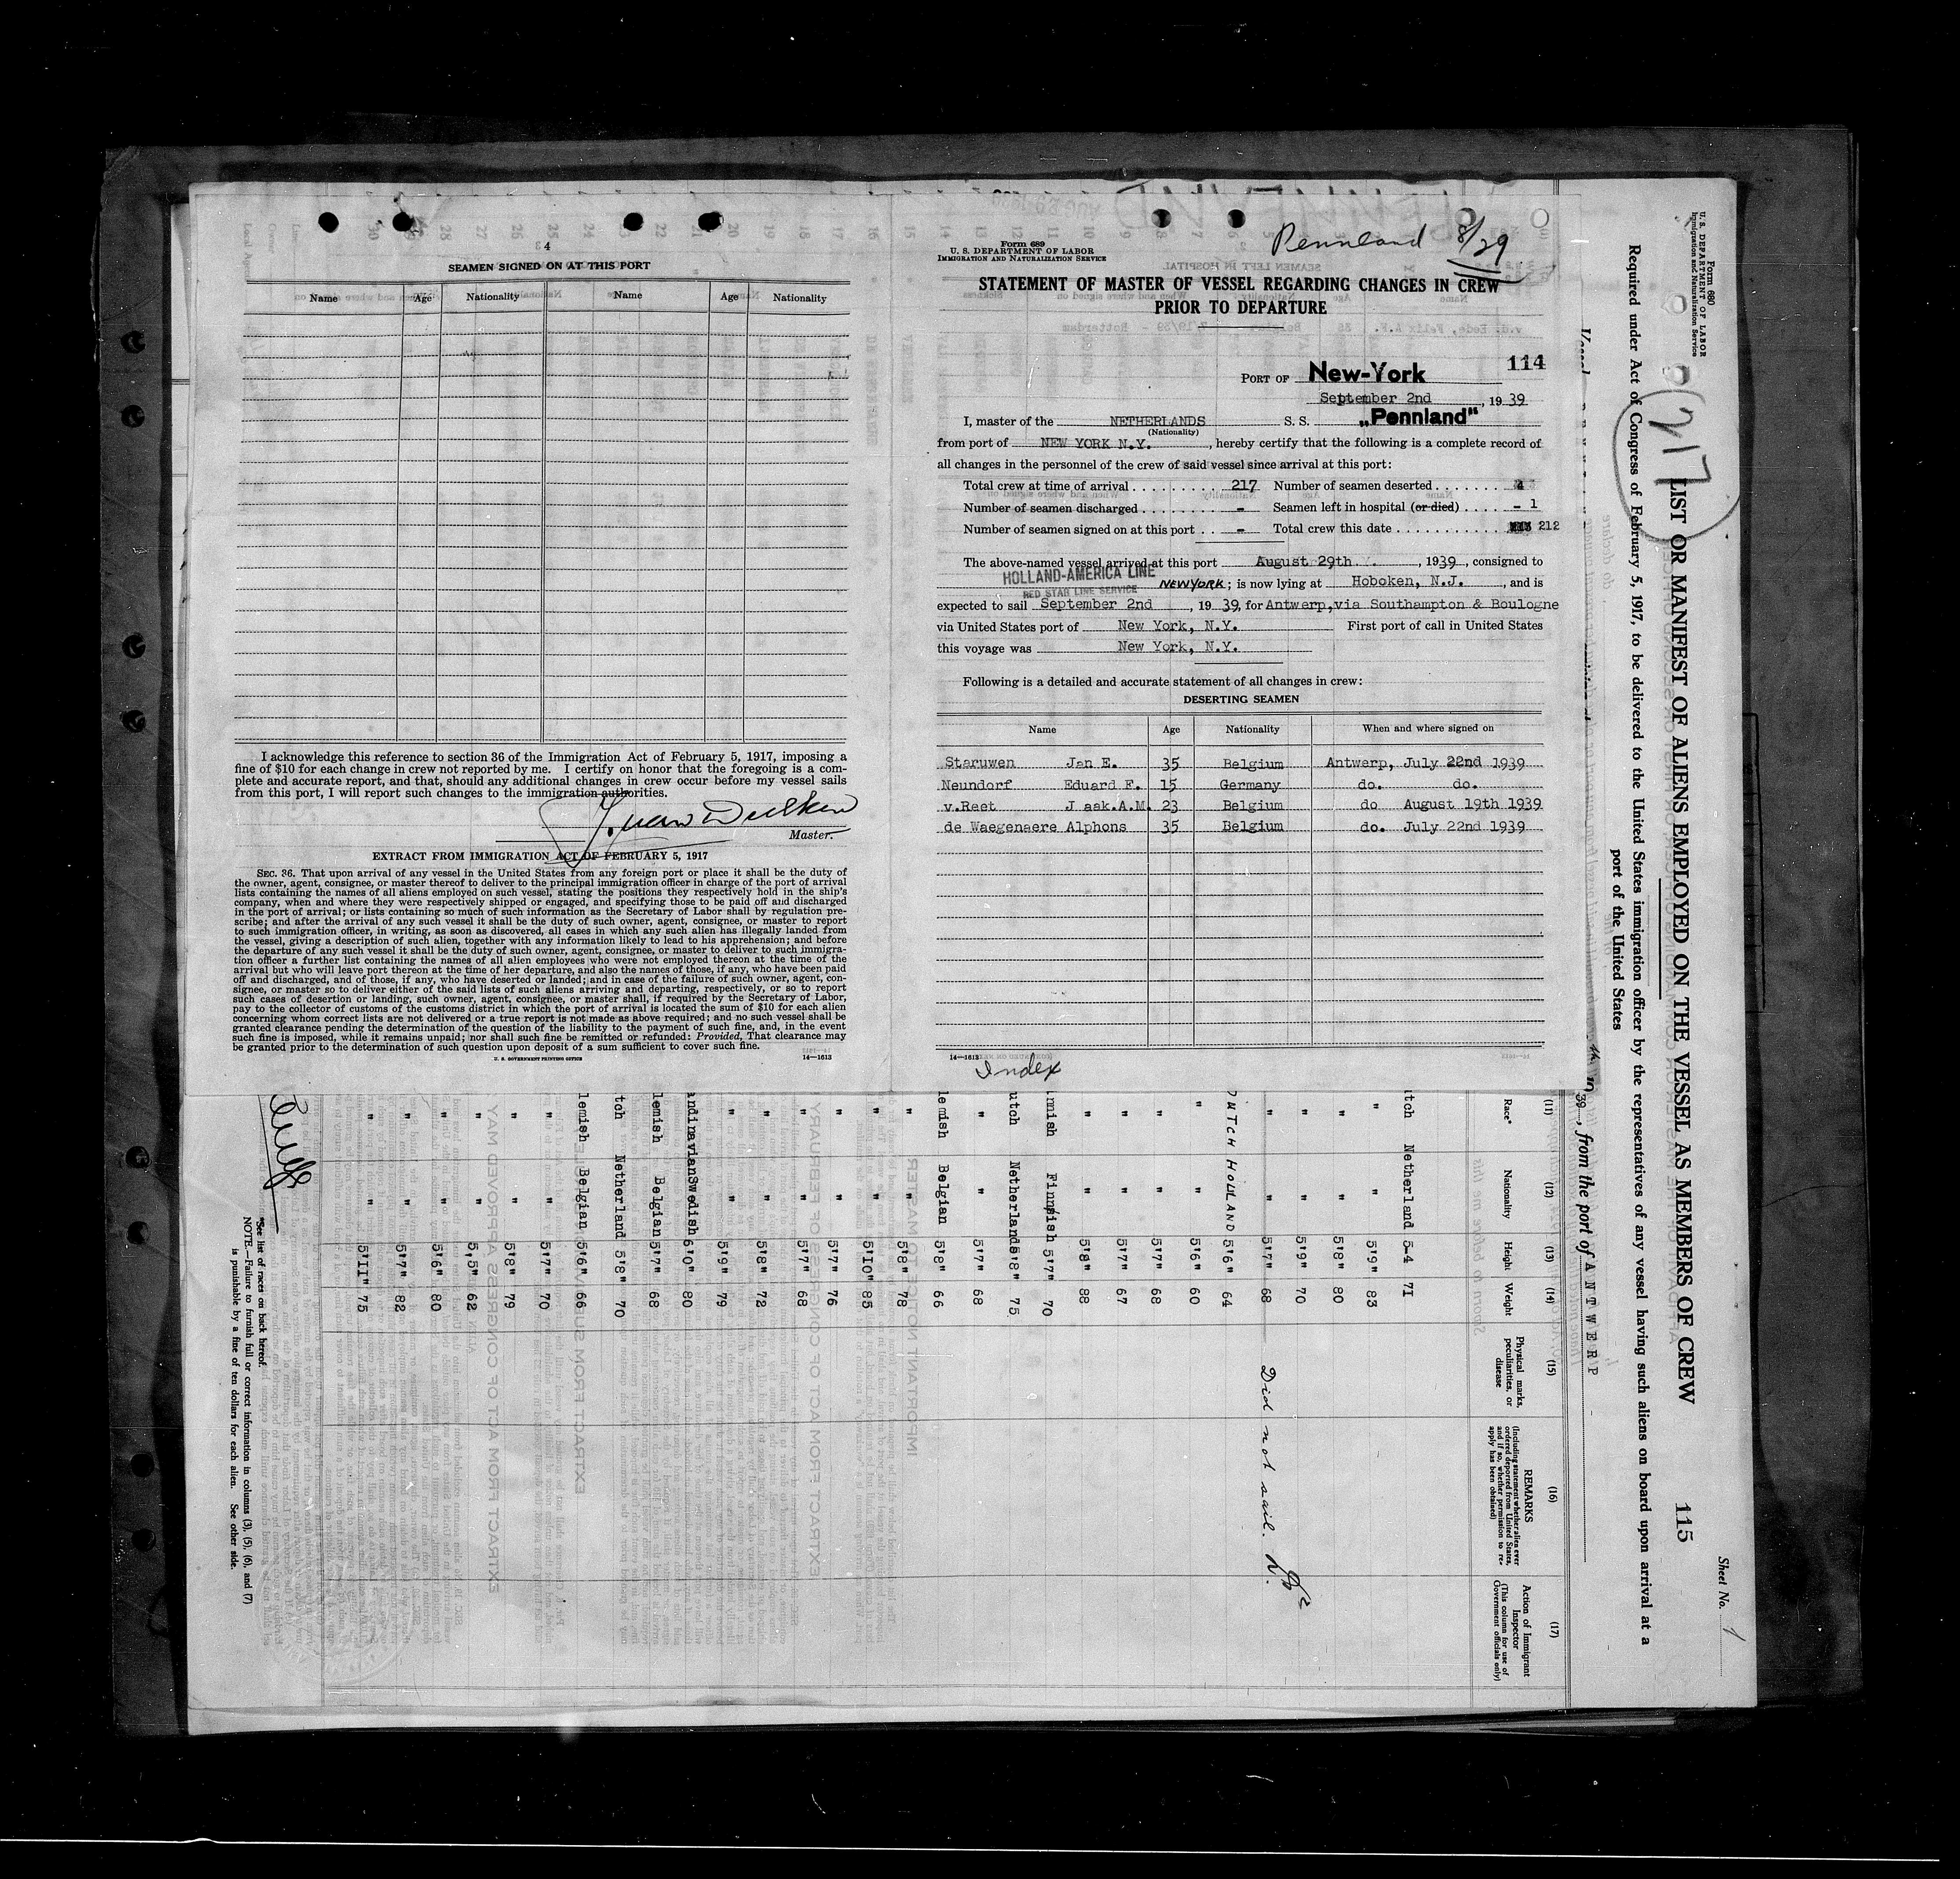 4
SEAMEN SIGNED ON AT THIS PORT
Name Age Nationality Name Age Nationality
I acknowledge this reference to section 36 of the Immigration Act of February 5, 1917, imposing a
fine of $10 for each change in crew not reported by me. I certify on honor that the foregoing is a com-
plete and accurate report, and that, should any additional changes in crew occur before my vessel sails
from this port, I will report such changes to the immigration authorities.
Master.
EXTRACT FROM IMMIGRATION ACT OF FEBRUARY 5, 1917
SEC. 36. That upon arrival of any vessel in the United States from any foreign port or place it shall be the duty of
the owner, agent, consignee, or master thereof to deliver to the principal immigration officer in charge of the port of arrival
lists containing the names of all aliens employed on such vessel, stating the positions they respectively hold in the ship's
company, when and where they were respectively shipped or engaged, and specifying those to be paid off and discharged
in the port of arrival; or lists containing so much of such information as the Secretary of Labor shall by regulation pre-
scribe; and after the arrival of any such vessel it shall be the duty of such owner, agent, consignee, or master to report
to such immigration officer, in writing, as soon as discovered, all cases in which any such alien has illegally landed from
the vessel, giving a description of such alien, together with any information likely to lead to his apprehension; and before
the departure of any such vessel it shall be the duty of such owner, agent, consignee, or master to deliver to such immigra-
tion officer a further list containing the names of all alien employees who were not employed thereon at the time of the
arrival but who will leave port thereon at the time of her departure, and also the names of those, if any, who have been paid
off and discharged, and of those, if any, who have deserted or landed; and in case of the failure of such owner, agent, con-
signee, or master so to deliver either of the said lists of such aliens arriving and departing, respectively, or so to report
such cases of desertion or landing, such owner, agent, consignee, or master shall, if required by the Secretary of Labor,
pay to the collector of customs of the customs district in which the port of arrival is located the sum of $10 for each alien
concerning whom correct lists are not delivered or a true report is not made as above required; and no such vessel shall be
granted clearance pending the determination of the question of the liability to the payment of such fine, and, in the event
such fine is imposed, while it remains unpaid; nor shall such fine be remitted or refunded: Provided, That clearance may
be granted prior to the determination of such question upon deposit of a sum sufficient to cover such fine.
U. S. GOVERNMENT PRINTING OFFICE 14—1613
Pennland 8/29
Form 689
U. S. DEPARTMENT OF LABOR
IMMIGRATION AND NATURALIZATION SERVICE
STATEMENT OF MASTER OF VESSEL REGARDING CHANGES IN CREW
PRIOR TO DEPARTURE
114
PORT OF New-York
September 2nd, 1939
I, master of the NETHERLANDS S. S. „Pennland"
(Nationality)
from port of NEW YORK N.Y., hereby certify that the following is a complete record of
all changes in the personnel of the crew of said vessel since arrival at this port:
Total crew at time of arrival 217 Number of seamen deserted 4
Number of seamen discharged - Seamen left in hospital (or died) - 1
Number of seamen signed on at this port - Total crew this date 212
The above-named vessel arrived at this port August 29th, 1939, consigned to
HOLLAND-AMERICA LINE
RED STAR LINE SERVICE
NEW YORK; is now lying at Hoboken, N.J., and is
expected to sail September 2nd, 1939, for Antwerp,via Southampton & Boulogne
via United States port of New York, N.Y. First port of call in United States
this voyage was New York, N.Y.
Following is a detailed and accurate statement of all changes in crew:
DESERTING SEAMEN
Name Age Nationality When and where signed on
Staruwen Jan E. 35 Belgium Antwerp, July 22nd 1939
Neundorf Eduard F. 15 Germany do. do.
v.Reet J aak.A.M. 23 Belgium do August 19th 1939
de Waegenaere Alphons 35 Belgium do. July 22nd 1939
14—1613
Index
Form 680
U. S. DEPARTMENT OF LABOR
Immigration and Naturalization Service
Sheet No. 1
217
LIST OR MANIFEST OF ALIENS EMPLOYED ON THE VESSEL AS MEMBERS OF CREW 115
Required under Act of Congress of February 5, 1917, to be delivered to the United States immigration officer by the representatives of any vessel having such aliens on board upon arrival at a
port of the United States
39, from the port of ANTWERP
(11) (12) (13) (14) (15) (16) (17)
Race* Nationality Height Weight Physical marks, peculiarities, or disease REMARKS (Including statement whether alien ever ordered deported from United States, and if so, whether permission to re-apply has been obtained) Action of Immigrant Inspector (This column for use of Government officials only)
tch Netherland 5-4 71
" " 5'9" 83
" " 5'8" 80
" " 5'9" 70
" " 5'7" 68 Did not sail.
DUTCH HOLLAND 5'6" 64
" " 5'6" 60
" " 5'7" 68
" " 5'7" 67
" " 5'8" 88
nnish Finnsish 5'7" 70
utch Netherlands 5'8" 75
" " 5'7" 68
lemish Belgian 5'8" 66
" " 5'8" 78
" " 5'10" 85
" " 5'7" 76
" " 5'7" 68
" " 5'8" 72
" " 5'9" 79
andinavian Swedish 6'0" 80
lemish Belgian 5'7" 68
tch Netherland 5'8" 70
lemish Belgian 5'6" 66
" " 5'7" 70
" " 5'8" 79
" " 5,5" 62
" " 5'6" 80
" " 5'7" 82
" " 5'11" 75
*See list of races on back hereof.
NOTE.—Failure to furnish full or correct information in columns (3), (5), (6), and (7)
is punishable by a fine of ten dollars for each alien. See other side.